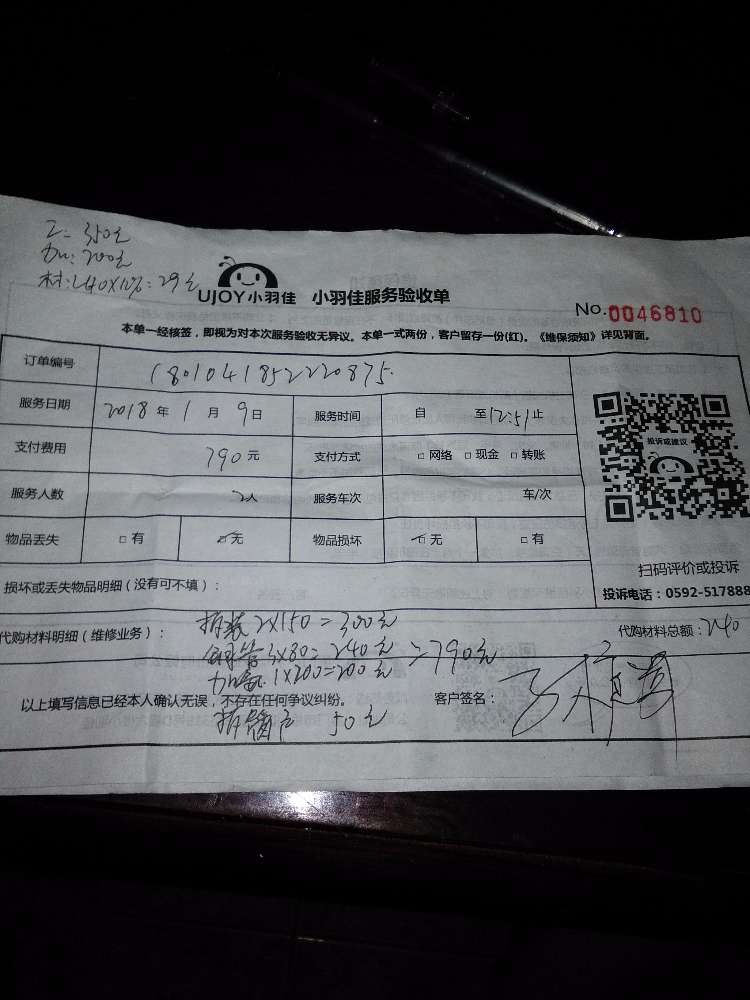 工：350元
加：200元
材：240X12%：29元
UJOY小羽佳 小羽佳服务验收单
No.0046810
本单一经核签，即视为对本次服务验收无异议。本单一式两份，客户留存一份(红)。《维保须知》详见背面。
订单编号 180104185222087​5.
服务日期 2018年1月9日 服务时间 自 至12:51止
投诉或建议
支付费用 790元 支付方式 □网络 □现金 □转账
服务人数 2人 服务车次 车/次
物品丢失 □有 □无 物品损坏 □无 □有
扫码评价或投诉
损坏或丢失物品明细（没有可不填）：
投诉电话：0592-517888
拆装2X150=300元
代购材料明细（维修业务）： 铜管3X80=240元 =790元
代购材料总额：240
加氟1X200=200元
以上填写信息已经本人确认无误，不存在任何争议纠纷。 客户签名：
50元